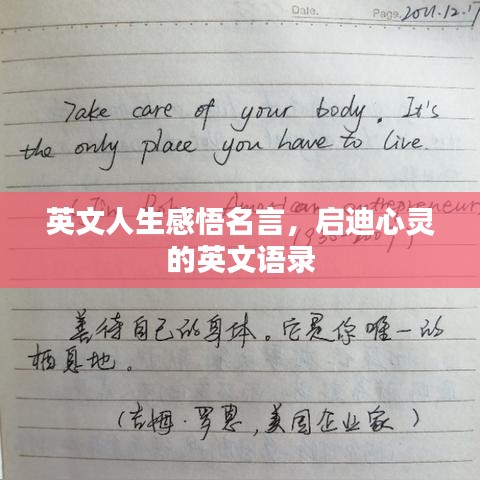 Date.
Page. 2021.12.17
Take care of your body. It's
the only place you have to live.
American entrepreneur,
英文人生感悟名言，启迪心灵
的英文语录
善待自己的身体。它是你唯一的
栖息地。
（吉姆·罗恩，美国企业家）